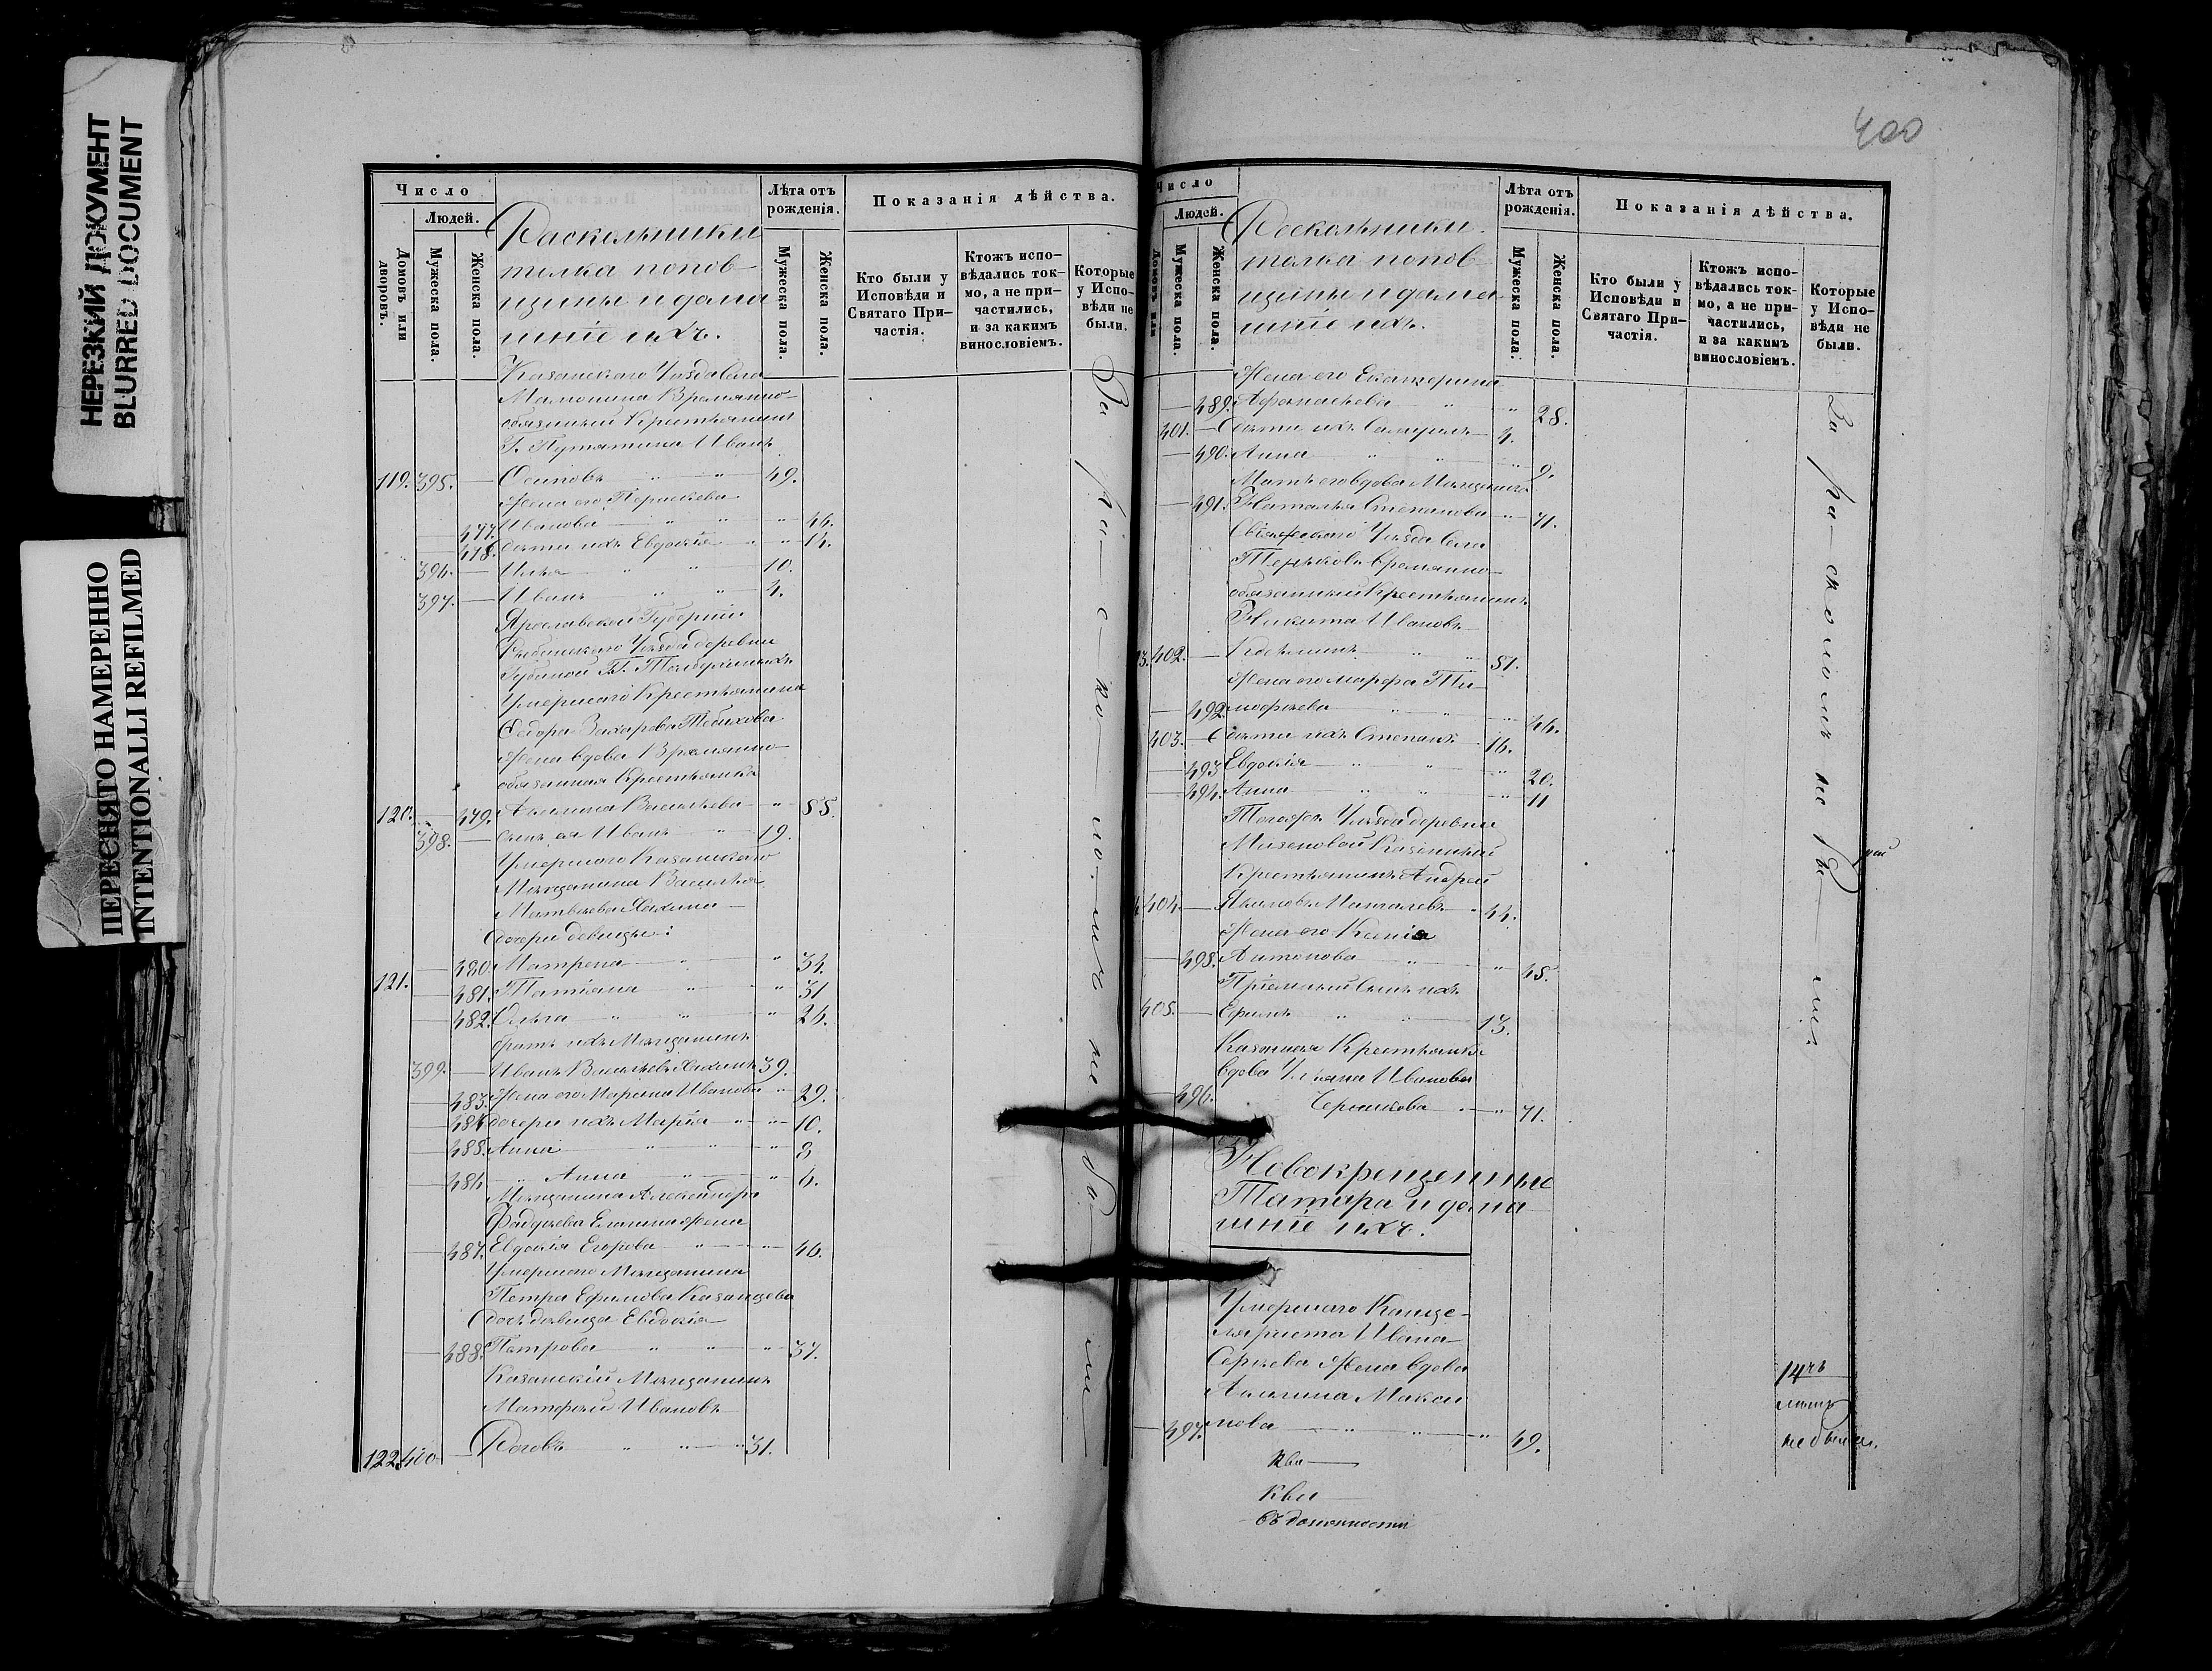 НЕРЕЗКИЙ ДОКУМЕНТ
BLURRED DOCUMENT
ПЕРЕСНЯТО НАМЕРЕННО
INTENTIONALLI REFILMED
Число
Людей.
Домовъ или дворовъ.
Мужеска пола.
Женска пола.
Раскольники
толка попов-
щины и дома
шніе ихъ.
Лѣта отъ рожденія.
Мужеска пола.
Женска пола.
Показанія дѣйства.
Кто были у Исповѣди и Святаго Причастія.
Ктожъ исповѣдались токмо, а не причастились, и за какимъ винословіемъ.
Которые у Исповѣди не были.
Казанскаго Уѣзда Села
Мамонина Временно-
обязанный Крестьянинъ
Г. Путятина Иванъ
119. 395. — Осиповъ " " 49.
Жена его Параскева
477. Иванова " " " 46.
478. дѣти ихъ Евдокія " " 14.
396. — Илья " " 10.
397. — Иванъ " " 4.
Ярославской Губерніи
Рыбинскаго Уѣзда деревни
Умершаго Крестьянина
Ѳедора Захарова
Жена вдова Временно-
обязанная Крестьянка
120. — 479. Акилина Васильева " 55.
398. — сынъ ея Иванъ " 19.
Умершаго Казанскаго
Мѣщанина Василья
Матвѣева
дочери девицы:
121. — 480. Матрена " " 34.
— 481. Татіана " " 31
— 482. Ольга " " " 24.
братъ ихъ Мѣщанинъ
399. — Иванъ Васильевъ 39.
— 483. Жена его Марина Иванова " 29.
— 484. дочери ихъ Марія " " 10.
— 485. Анна " " " 8
— 486. " Анна " " 6.
Мѣщанина Александра
Фадѣева Жена
— 487. Евдокія Егорова " " 46.
Умершаго Мѣщанина
Петра Ефимова Казанцева
дочь дѣвица Евдокія
— 488. Петрова " " " 37.
Казанскій Мѣщанинъ
Матфей Ивановъ
122. 400. — Роговъ " " 31.
За рас-ко-ло-мъ не бы-ли
400
Число
Людей.
Домовъ или
Мужеска пола.
Женска пола.
Роскольники
толка попов-
щины и дома
шніе ихъ.
Лѣта отъ рожденія.
Мужеска пола.
Женска пола.
Показанія дѣйства.
Кто были у Исповѣди и Святаго Причастія.
Ктожъ исповѣдались токмо, а не причастились, и за какимъ винословіемъ.
Которые у Исповѣди не были.
Жена его Екатерина
— 489. Афанасьева " " 28.
401. — дѣти ихъ 4.
— 490. Анна " " " 9.
Мать его вдова Мѣщанина
— 491. Наталья Степанова " 71.
Свіяжскаго Уѣзда Села
Временно-
обязанный Крестьянинъ
Никита Ивановъ
3. 402. — " " 51.
Жена его Марфа Ти-
— 492. мофѣева " " " 46.
403. — дѣти ихъ Степанъ 16.
— 493 Евдокія " " " 20.
— 494. Анна " " " 11
Тогожъ Уѣзда деревни
Казенный
Крестьянинъ Андрей
404. — Яковлевъ " 44.
Жена его Ксенія
— 495. Антонова " " 45.
Пріемный Сынъ ихъ
405. — Ефимъ " " 13.
Казенная Крестьянка
вдова Ульяна Иванова
— 496. " 71.
Новокрещенные
Татара и дома
шніе ихъ.
Умершаго Канце-
ляриста Ивана
Сергѣева Жена вдова
Акилина Макси
— 497. мова " " " 49.
За ра-сколомъ не бы-ли.
14ть
лѣтъ
не былъ.
ква
кви
въ должности